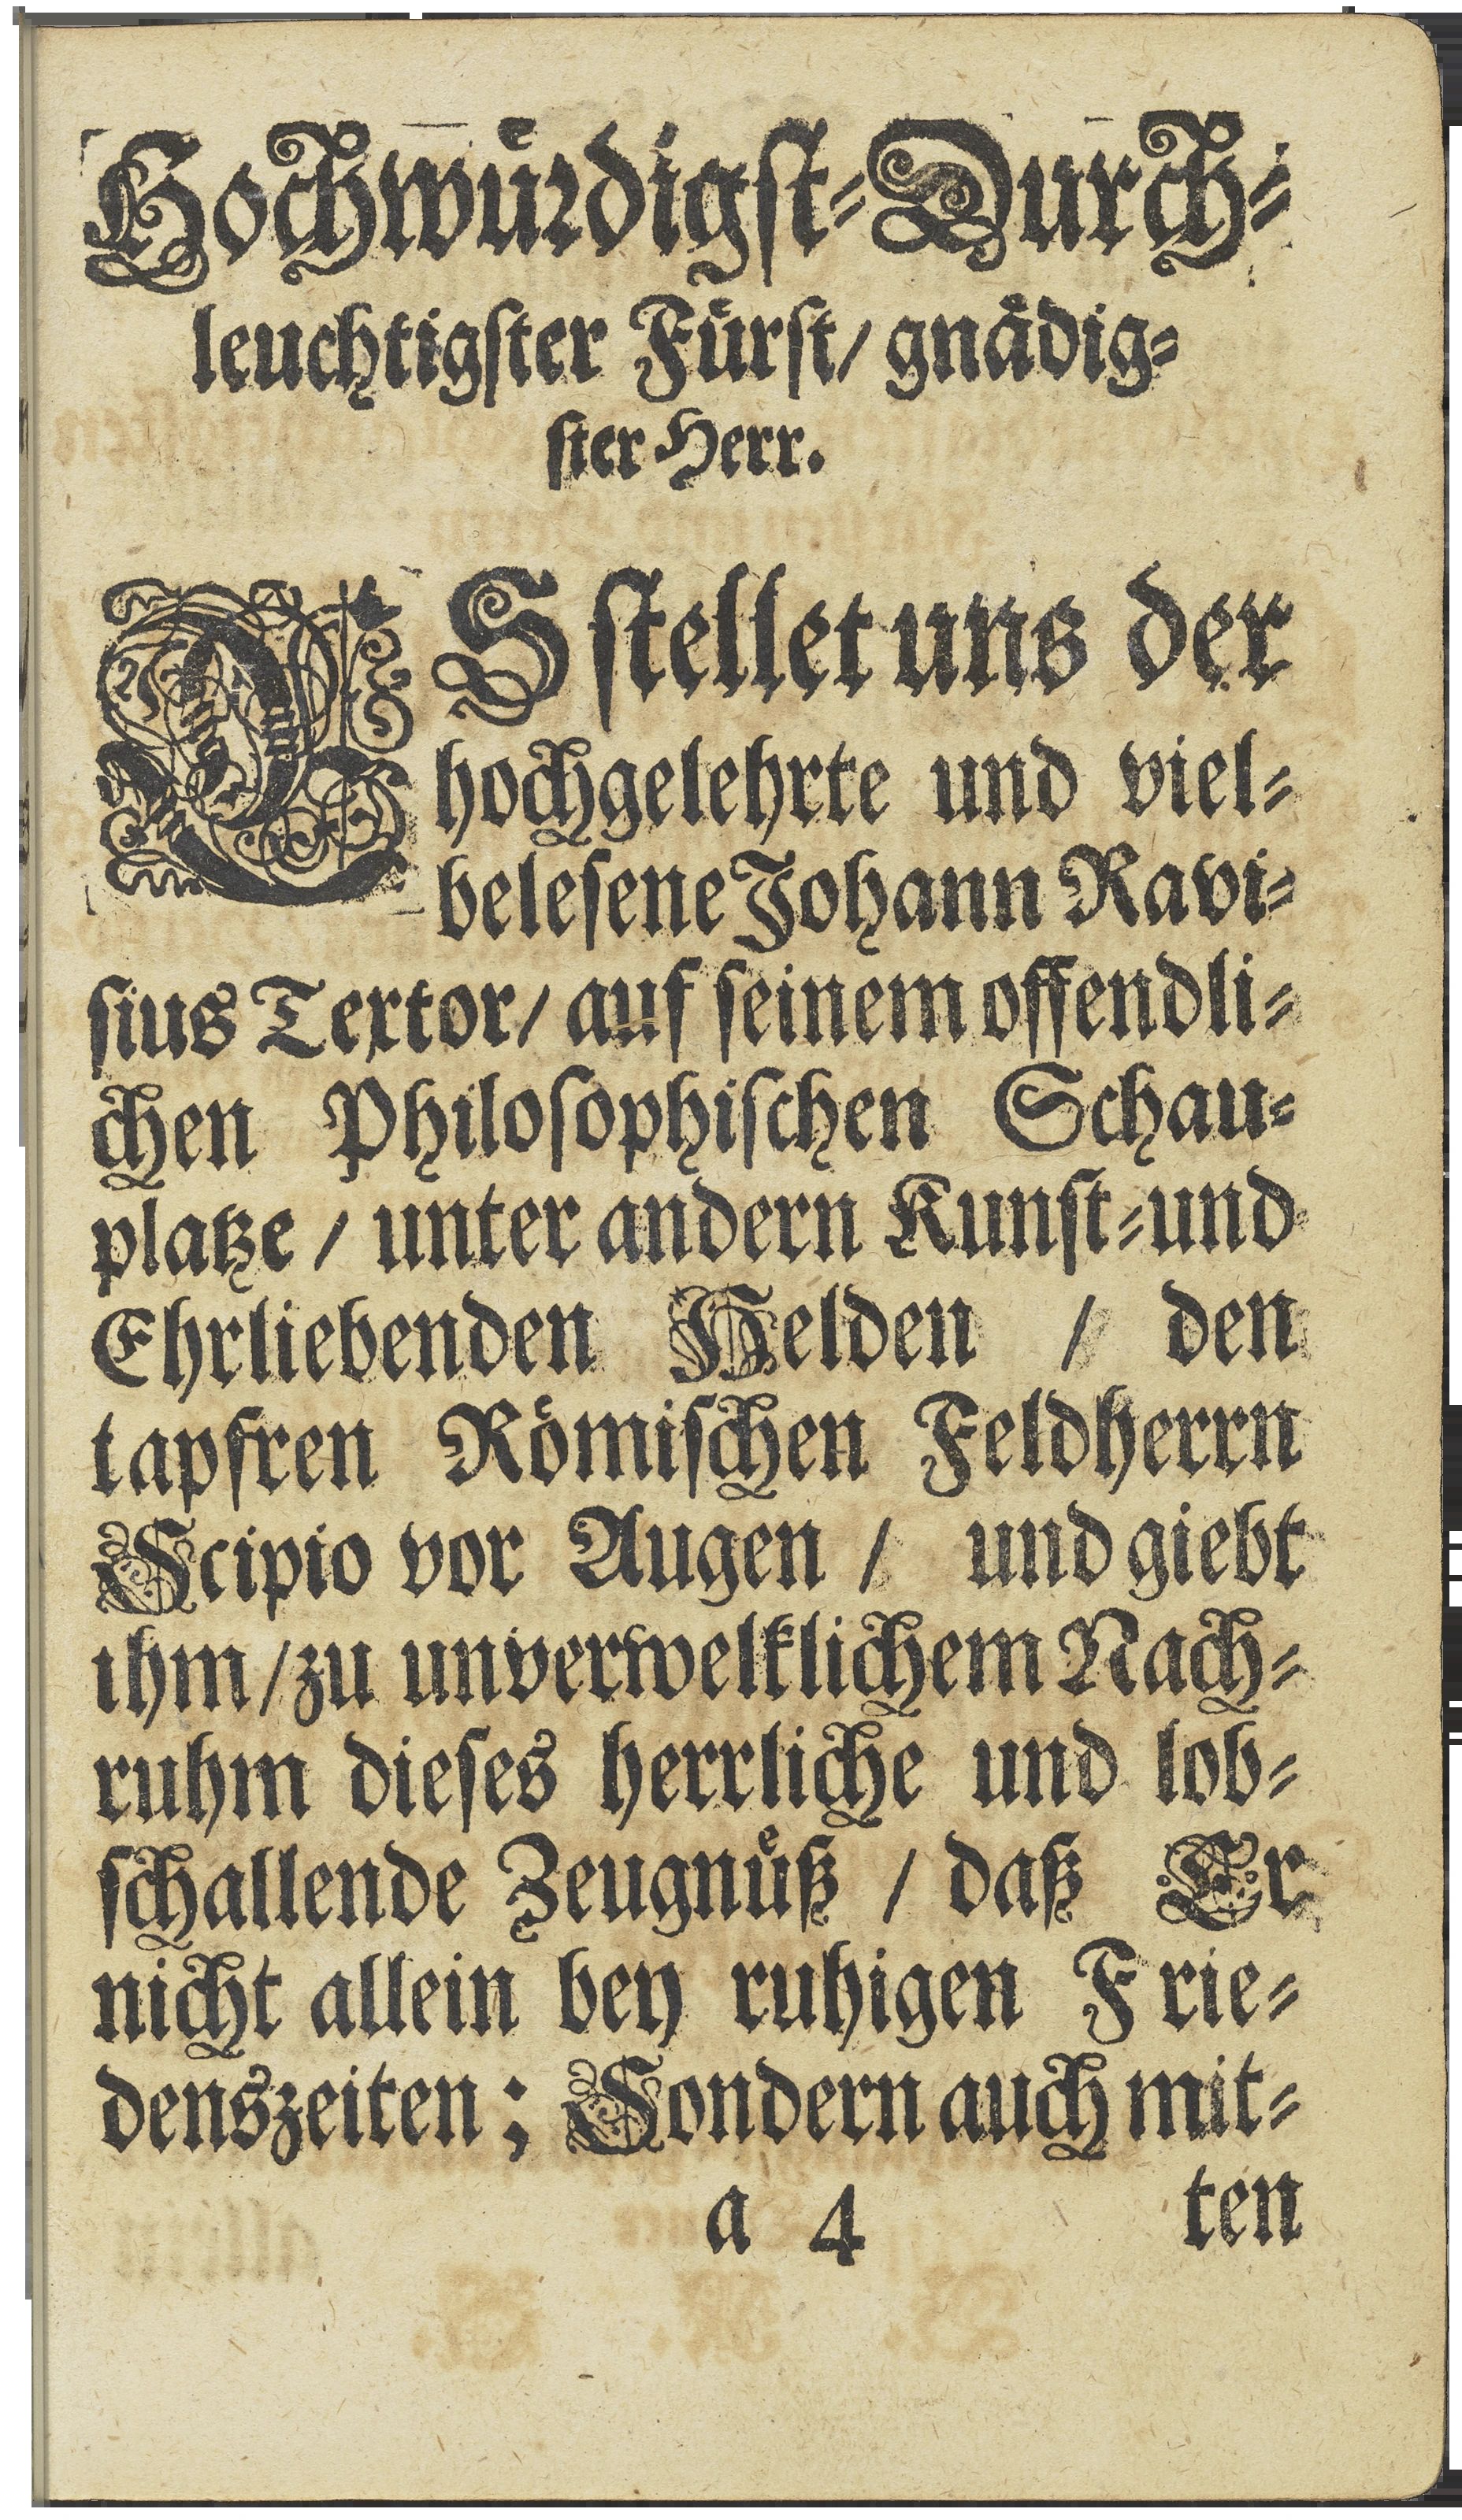 Hochwuͤrdigſt-Durch-
leuchtigſter Fuͤrſt/ gnaͤdig-
ſter Herr.
ES ſtellet uns der
hochgelehrte und viel-
beleſene Johann Ravi-
ſius Textor/ auf ſeinem offendli-
chen Philoſophiſchen Schau-
platze / unter andern Kunſt-und
Ehrliebenden Helden / den
tapfren Roͤmiſchen Feldherrn
Scipio vor Augen / und giebt
ihm/zu unverwelklichem Nach-
ruhm dieſes herrliche und lob-
ſchallende Zeugnuͤß / daß Er
nicht allein bey ruhigen Frie-
denszeiten; Sondern auch mit-
a 4 ten